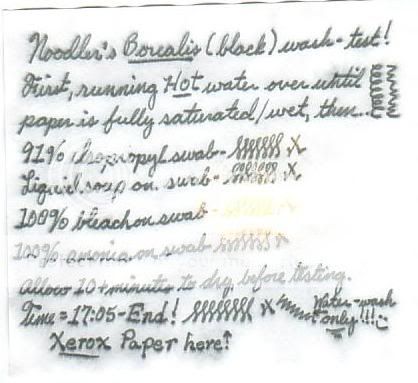 Noodler's Borealis (black) wash-test!
First, running Hot water over until
paper is fully saturated/wet, then...
91% Isopropyl swab- X
Liquid soap on swab- X
100% bleach on swab
100% amonia on swab- X
Allow 10+ minutes to dry before testing.
Time = 17:05-End! X Water-wash
only!!!
Xerox Paper here↑